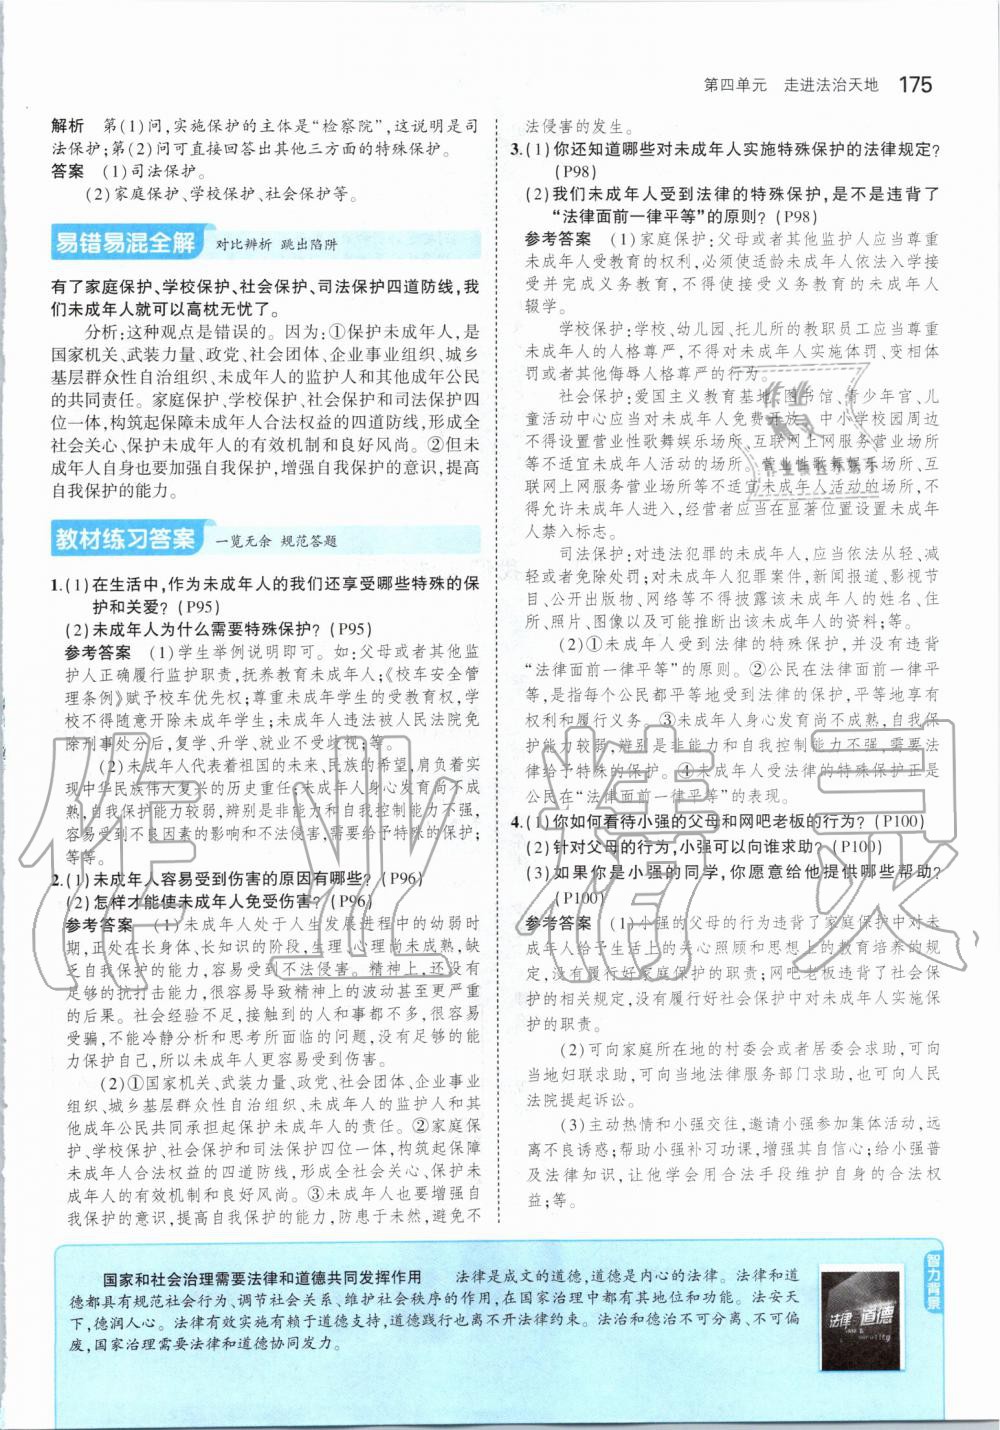 第四单元　走进法治天地　175
解析　第(1)问,实施保护的主体是“检察院”,这说明是司
法保护;第(2)问可直接回答出其他三方面的特殊保护。
答案　(1)司法保护。
(2)家庭保护、学校保护、社会保护等。
易错易混全解　对比辨析 跳出陷阱
有了家庭保护、学校保护、社会保护、司法保护四道防线,我
们未成年人就可以高枕无忧了。
分析:这种观点是错误的。因为:①保护未成年人,是
国家机关、武装力量、政党、社会团体、企业事业组织、城乡
基层群众性自治组织、未成年人的监护人和其他成年公民
的共同责任。家庭保护、学校保护、社会保护和司法保护四
位一体,构筑起保障未成年人合法权益的四道防线,形成全
社会关心、保护未成年人的有效机制和良好风尚。②但未
成年人自身也要加强自我保护,增强自我保护的意识,提高
自我保护的能力。
教材练习答案　一览无余 规范答题
1.(1)在生活中,作为未成年人的我们还享受哪些特殊的保
护和关爱?(P95)
(2)未成年人为什么需要特殊保护?(P95)
参考答案　(1)学生举例说明即可。如:父母或者其他监
护人正确履行监护职责,抚养教育未成年人;《校车安全管
理条例》赋予校车优先权;尊重未成年学生的受教育权,学
校不得随意开除未成年学生;未成年人违法被人民法院免
除刑事处分后,复学、升学、就业不受歧视;等。
(2)未成年人代表着祖国的未来、民族的希望,肩负着实
现中华民族伟大复兴的历史重任;未成年人身心发育尚不成
熟,自我保护能力较弱,辨别是非能力和自我控制能力不强,
容易受到不良因素的影响和不法侵害,需要给予特殊的保护;
等等。
2.(1)未成年人容易受到伤害的原因有哪些?(P96)
(2)怎样才能使未成年人免受伤害?(P96)
参考答案　(1)未成年人处于人生发展进程中的幼弱时
期,正处在长身体、长知识的阶段,生理、心理尚未成熟,缺
乏自我保护的能力,容易受到不法侵害。精神上,还没有
足够的抗打击能力,很容易导致精神上的波动甚至更严重
的后果。社会经验不足,接触到的人和事都不多,很容易
受骗,不能冷静分析和思考所面临的问题,没有足够的能
力保护自己,所以未成年人更容易受到伤害。
(2)①国家机关、武装力量、政党、社会团体、企业事业
组织、城乡基层群众性自治组织、未成年人的监护人和其
他成年公民共同承担起保护未成年人的责任。②家庭保
护、学校保护、社会保护和司法保护四位一体,构筑起保障
未成年人合法权益的四道防线,形成全社会关心、保护未
成年人的有效机制和良好风尚。③未成年人也要增强自
我保护的意识,提高自我保护的能力,防患于未然,避免不
法侵害的发生。
3.(1)你还知道哪些对未成年人实施特殊保护的法律规定?
(P98)
(2)我们未成年人受到法律的特殊保护,是不是违背了
“法律面前一律平等”的原则?(P98)
参考答案　(1)家庭保护:父母或者其他监护人应当尊重
未成年人受教育的权利,必须使适龄未成年人依法入学接
受并完成义务教育,不得使接受义务教育的未成年人
辍学。
学校保护:学校、幼儿园、托儿所的教职员工应当尊重
未成年人的人格尊严,不得对未成年人实施体罚、变相体
罚或者其他侮辱人格尊严的行为。
社会保护:爱国主义教育基地、图书馆、青少年宫、儿
童活动中心应当对未成年人免费开放;中小学校园周边
不得设置营业性歌舞娱乐场所、互联网上网服务营业场所
等不适宜未成年人活动的场所。营业性歌舞娱乐场所、互
联网上网服务营业场所等不适宜未成年人活动的场所,不
得允许未成年人进入,经营者应当在显著位置设置未成年
禁入标志。
司法保护:对违法犯罪的未成年人,应当依法从轻、减
轻或者免除处罚;对未成年人犯罪案件,新闻报道、影视节
目、公开出版物、网络等不得披露该未成年人的姓名、住
所、照片、图像以及可能推断出该未成年人的资料;等。
(2)①未成年人受到法律的特殊保护,并没有违背
“法律面前一律平等”的原则。②公民在法律面前一律平
等,是指每个公民都平等地受到法律的保护,平等地享有
权利和履行义务。③未成年人身心发育尚不成熟,自我保
护能力较弱;辨别是非能力和自我控制能力不强,需要法
律给予特殊的保护。④未成年人受法律的特殊保护正是
公民在“法律面前一律平等”的表现。
4.(1)你如何看待小强的父母和网吧老板的行为?(P100)
(2)针对父母的行为,小强可以向谁求助?(P100)
(3)如果你是小强的同学,你愿意给他提供哪些帮助?
(P100)
参考答案　(1)小强的父母的行为违背了家庭保护中对未
成年人给予生活上的关心照顾和思想上的教育培养的规
定,没有履行好家庭保护的职责;网吧老板违背了社会保
护的相关规定,没有履行好社会保护中对未成年人实施保
护的职责。
(2)可向家庭所在地的村委会或者居委会求助,可向
当地妇联求助,可向当地法律服务部门求助,也可向人民
法院提起诉讼。
(3)主动热情和小强交往,邀请小强参加集体活动,远
离不良诱惑;帮助小强补习功课,增强其自信心;给小强普
及法律知识,让他学会用合法手段维护自身的合法权
益;等。
国家和社会治理需要法律和道德共同发挥作用　法律是成文的道德,道德是内心的法律。法律和道
德都具有规范社会行为、调节社会关系、维护社会秩序的作用,在国家治理中都有其地位和功能。法安天
下,德润人心。法律有效实施有赖于道德支持,道德践行也离不开法律约束。法治和德治不可分离、不可偏
废,国家治理需要法律和道德协同发力。
法律与道德
智力背景
作业精灵